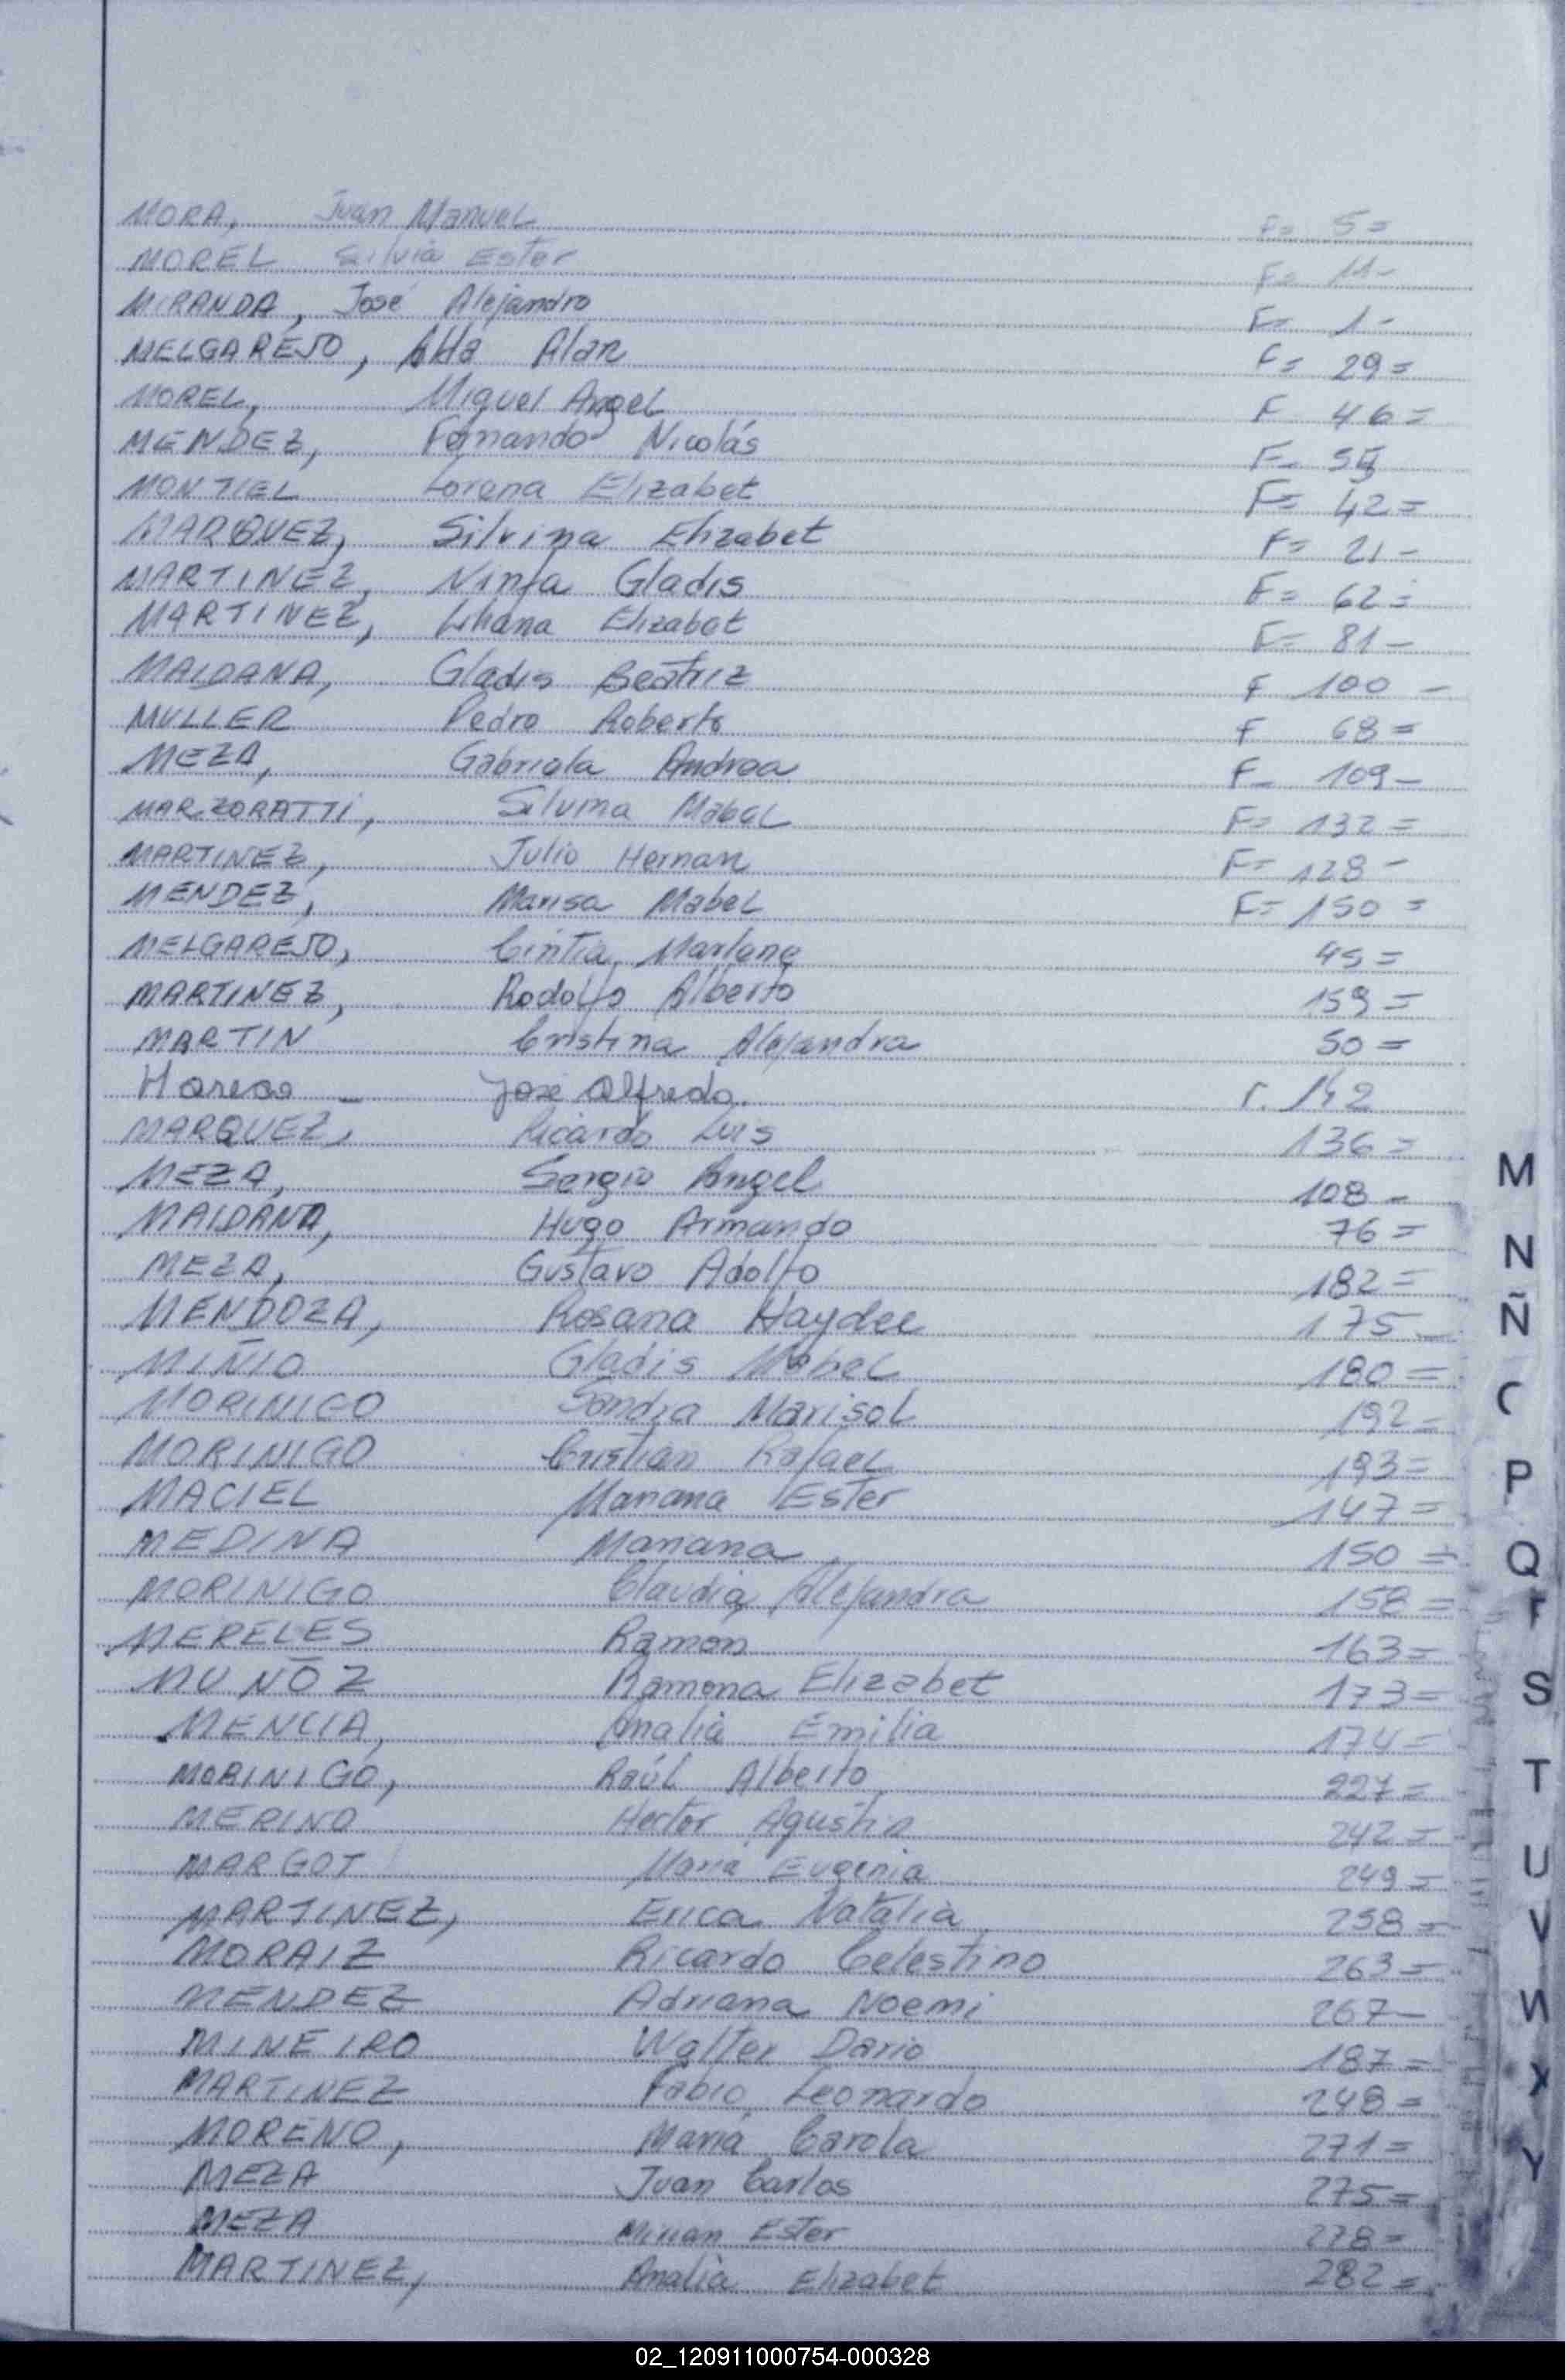 MORA, Juan Manuel F= 5=
MOREL Silvia Ester F= 11-
MIRANDA, José Alejandro F= 1-
MELGAREJO, Alan F= 29=
MOREL, Miguel Angel F 46=
MENDEZ, Fernando Nicolás F=
MONTIEL Lorena Elizabet F= 42=
MARQUEZ, Silvina Elizabet F= 21-
MARTINEZ, Ninfa Gladis F= 62=
MARTINEZ, Liliana Elizabet F= 81-
MAIDANA, Gladis Beatriz F 100-
MULLER Pedro Roberto F 68=
MEZA, Gabriela Andrea F- 109-
MARZORATTI, Silvina Mabel F= 132=
MARTINEZ, Julio Hernan F= 128-
MENDEZ, Marisa Mabel F= 150=
MELGAREJO, Cintia Marlene 45=
MARTINEZ, Rodolfo Alberto 159=
MARTIN Cristina Alejandra 50=
José Alfredo. 142
MARQUEZ, Ricardo Luis 136=
MEZA, Sergio Angel 108-
MAIDANA, Hugo Armando 76=
MEZA, Gustavo Adolfo 182=
MENDOZA, Rosana Haydee 175-
MIÑIO Gladis Mabel 180=
MORINIGO Sandra Marisol 192=
MORINIGO Cristian Rafael 193=
MACIEL Mariana Ester 147=
MEDINA Mariana 150=
MORINIGO Claudia Alejandra 158=
MERELES Ramon 163=
MUÑOZ Ramona Elizabet 173=
MENCIA, Analia Emilia 174=
MORINIGO, Raúl Alberto 227=
MERINO Hector Agustin 242=
MARGOT Maria Eugenia 249=
MARTINEZ, Erica Natalia 258=
MORAIZ Ricardo Celestino 263=
MENDEZ Adriana Noemi 267-
MINEIRO Walter Dario 187=
MARTINEZ Fabio Leonardo 248=
MORENO, Maria Carola 271=
MEZA Juan Carlos 275=
MEZA Mirian Ester 278=
MARTINEZ, Analia Elizabet 282=
M
N
Ñ
P
Q
S
T
U
V
X
Y
02_120911000754-000328